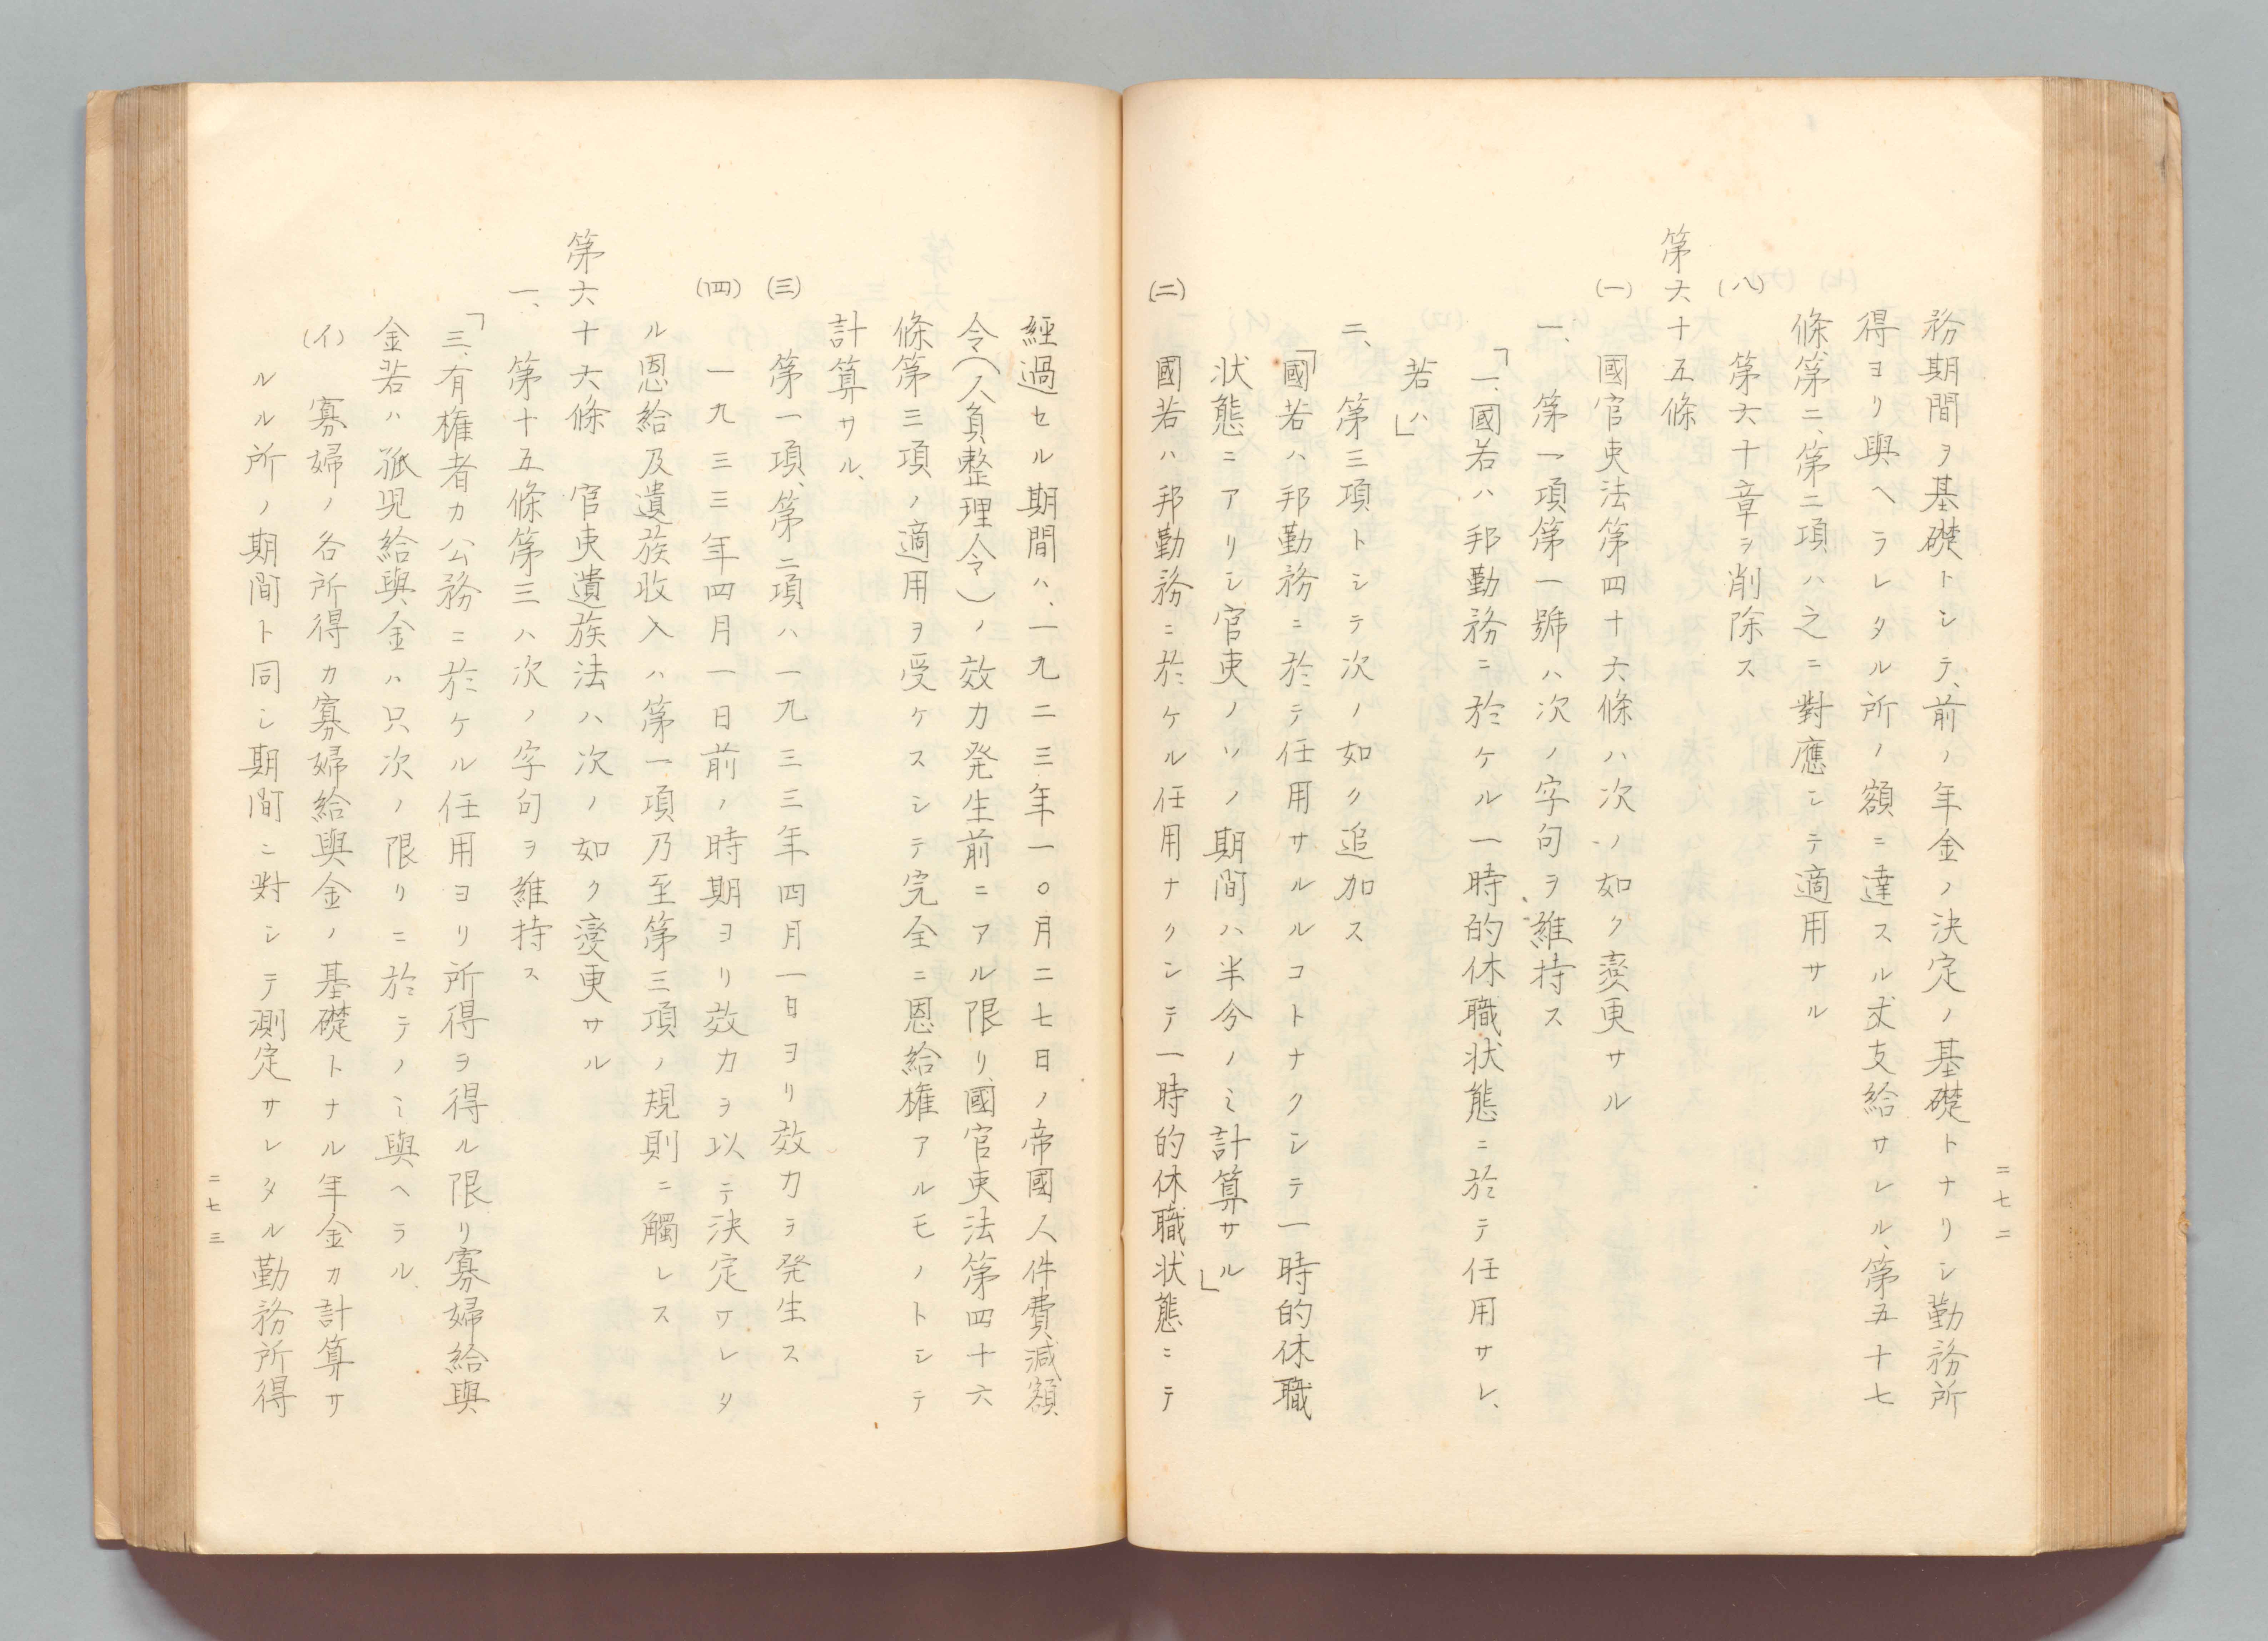 二七二
務期間ヲ基礎トシテ、前ノ年金ノ決定ノ基礎トナリシ勤務所
得ヨリ與ヘラレタル所ノ額ニ達スル丈支給サレル、第五十七
條第二、第三項ハ之ニ對應シテ適用サル
(八) 第六十章ヲ削除ス
第六十五條
(一) 國官吏法第四十六條ハ次ノ如ク変更サル
一、第一項第一號ハ次ノ字句ヲ維持ス
「一、國若ハ邦勤務ニ於ケル一時的休職状態ニ於テ任用サレ、
若ハ」
二、第三項トシテ次ノ如ク追加ス
「國若ハ邦勤務ニ於テ任用サルルコトナクシテ一時的休職
状態ニアリシ官吏ノソノ期間ハ半分ノミ計算サル」
(二) 國若ハ邦勤務ニ於ケル任用ナクシテ一時的休職状態ニテ
經過セル期間ハ、一九二三年一〇月二七日ノ帝國人件費減額
令(人員整理令)ノ效力発生前ニアル限リ、國官吏法第四十六
條第三項ノ適用ヲ受ケスシテ完全ニ恩給権アルモノトシテ
計算サル、
(三) 第一項、第二項ハ一九三三年四月一日ヨリ效力ヲ発生ス
(四) 一九三三年四月一日前ノ時期ヨリ效力ヲ以テ決定サレタ
ル恩給及遺族收入ハ第一項乃至第三項ノ規則ニ觸レス
第六十六條 官吏遺族法ハ次ノ如ク変更サル
一、第十五條第三ハ次ノ字句ヲ維持ス
「三、有権者カ公務ニ於ケル任用ヨリ所得ヲ得ル限リ寡婦給與
金若ハ孤児給與金ハ只次ノ限リニ於テノミ與ヘラル、
(イ) 寡婦ノ各所得カ寡婦給與金ノ基礎トナル年金カ計算サ
ルル所ノ期間ト同シ期間ニ對シテ測定サレタル勤務所得
二七三